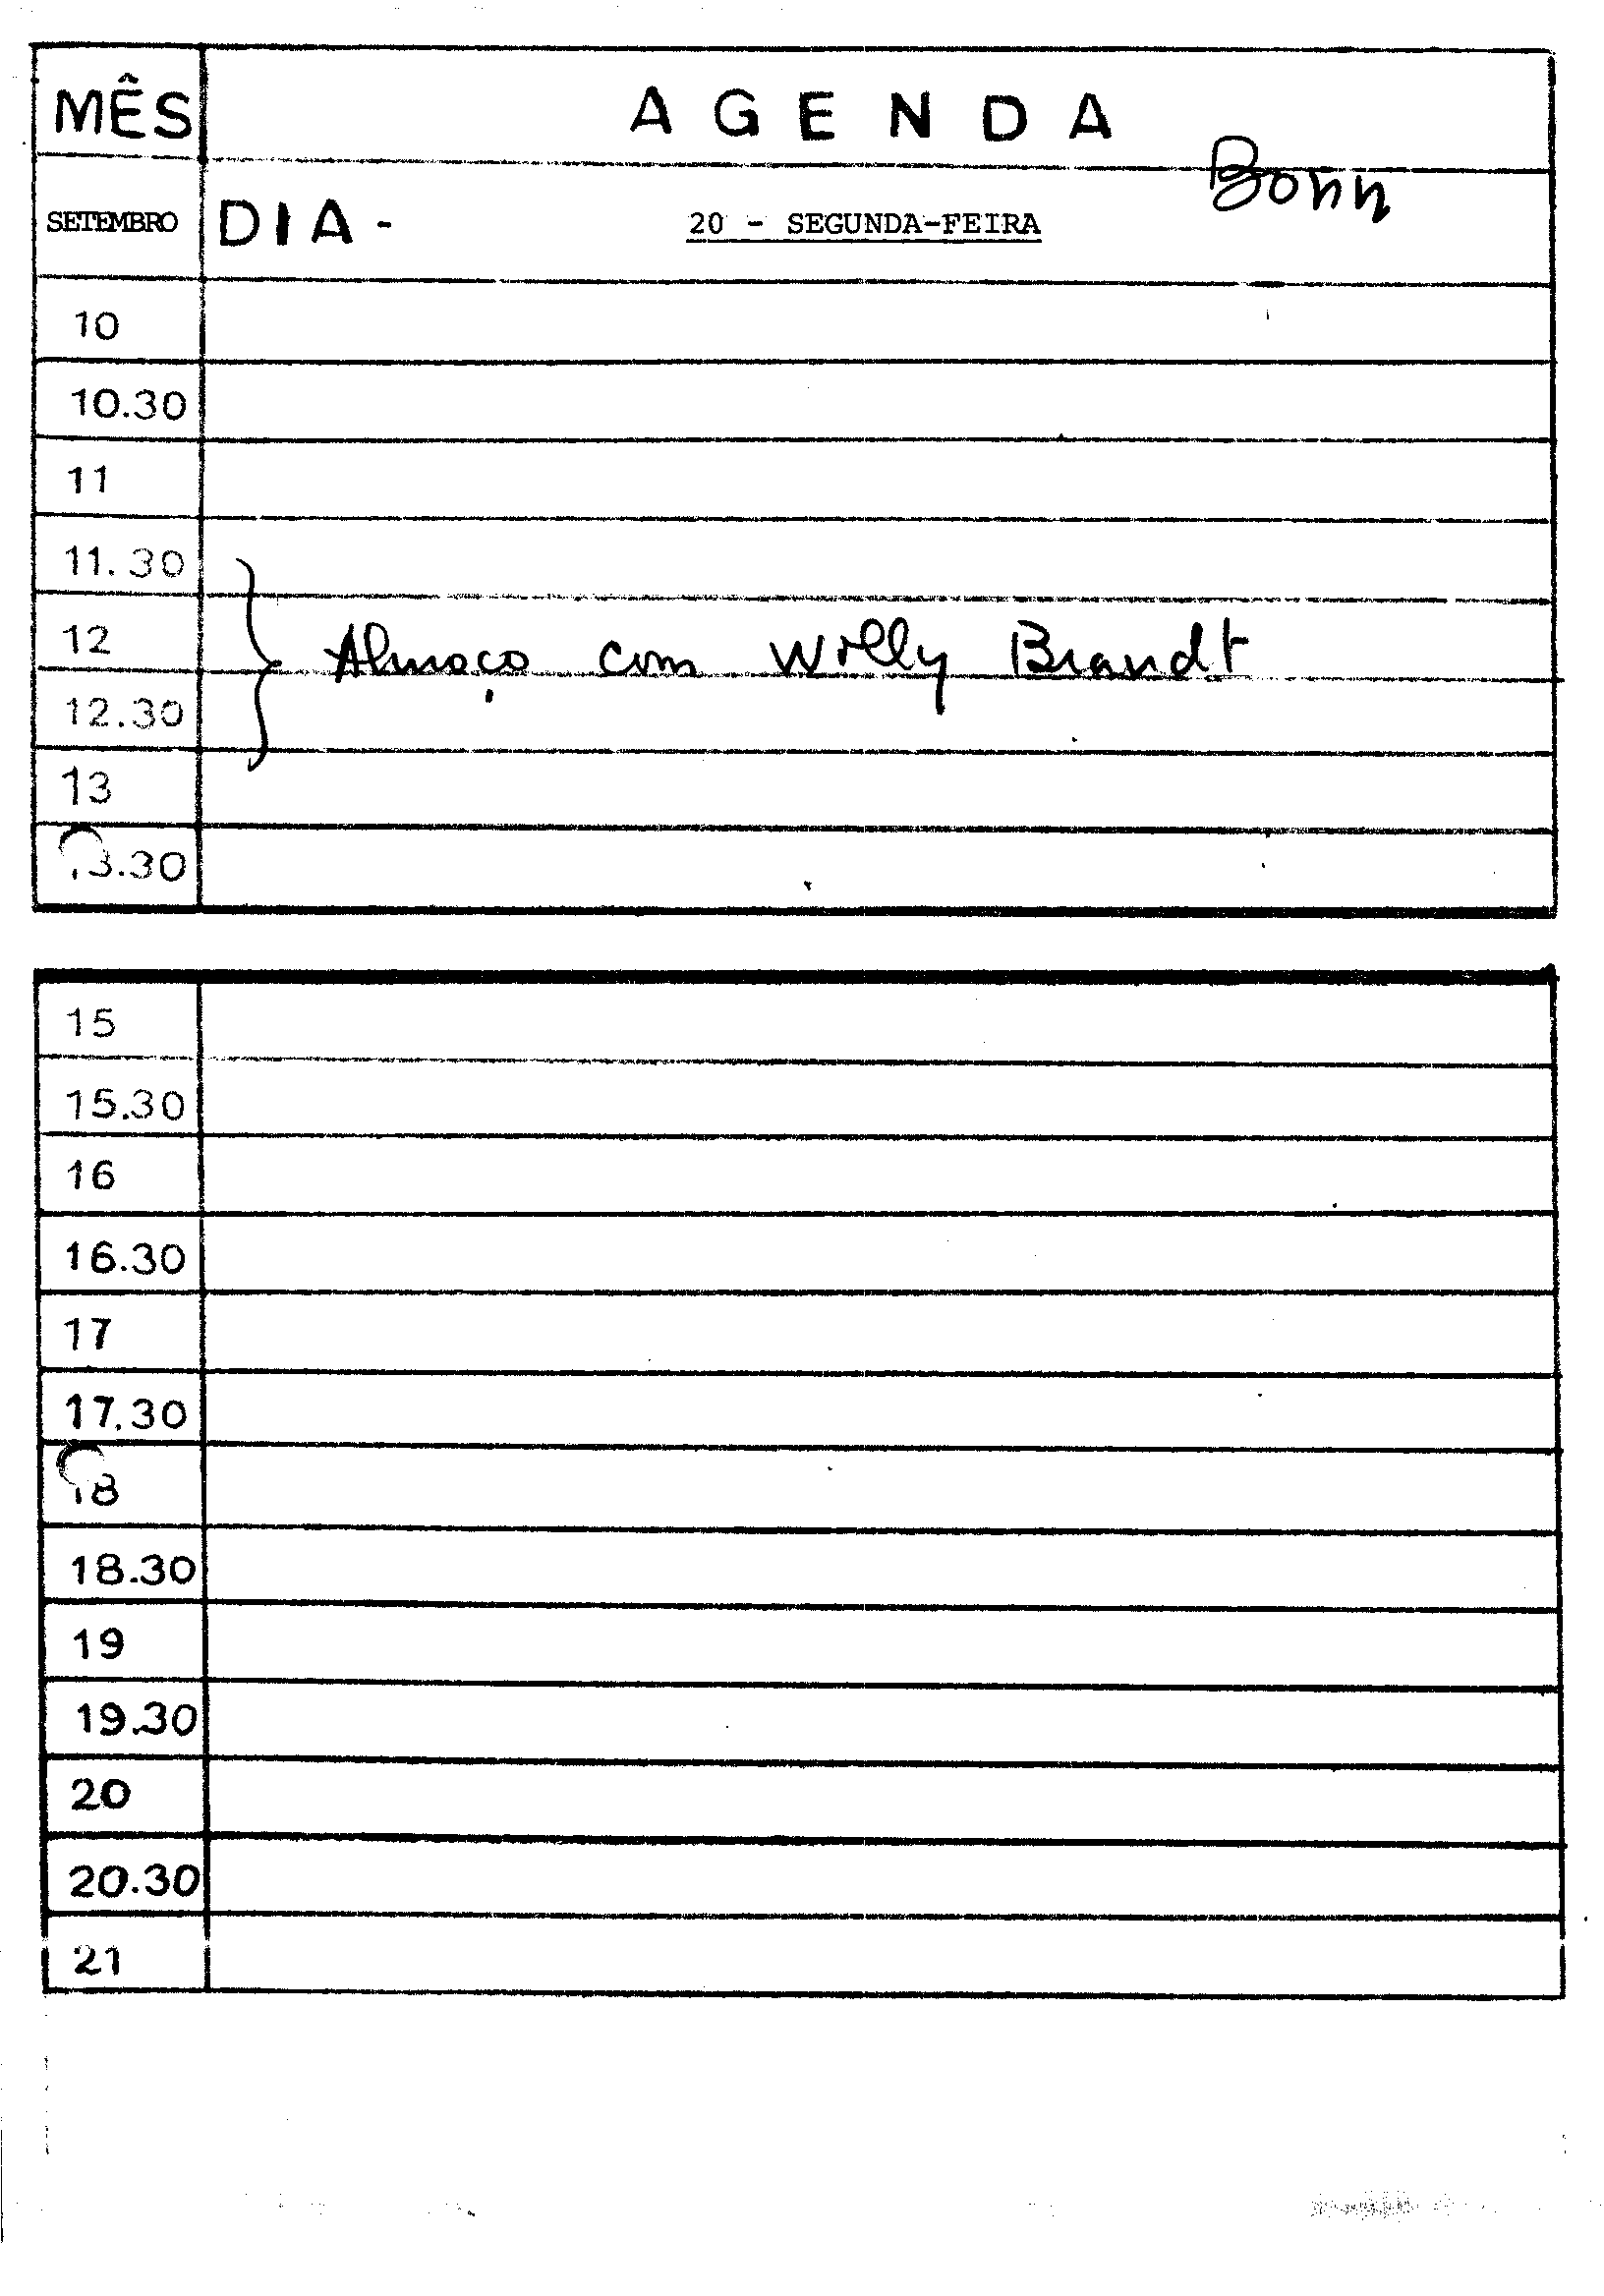 MÊS AGENDA
Bonn
SETEMBRO DIA - 20 - SEGUNDA-FEIRA
10
10.30
11
11.30
12 Almoço com Willy Brandt
12.30
13
13.30
15
15.30
16
16.30
17
17.30
18
18.30
19
19.30
20
20.30
21